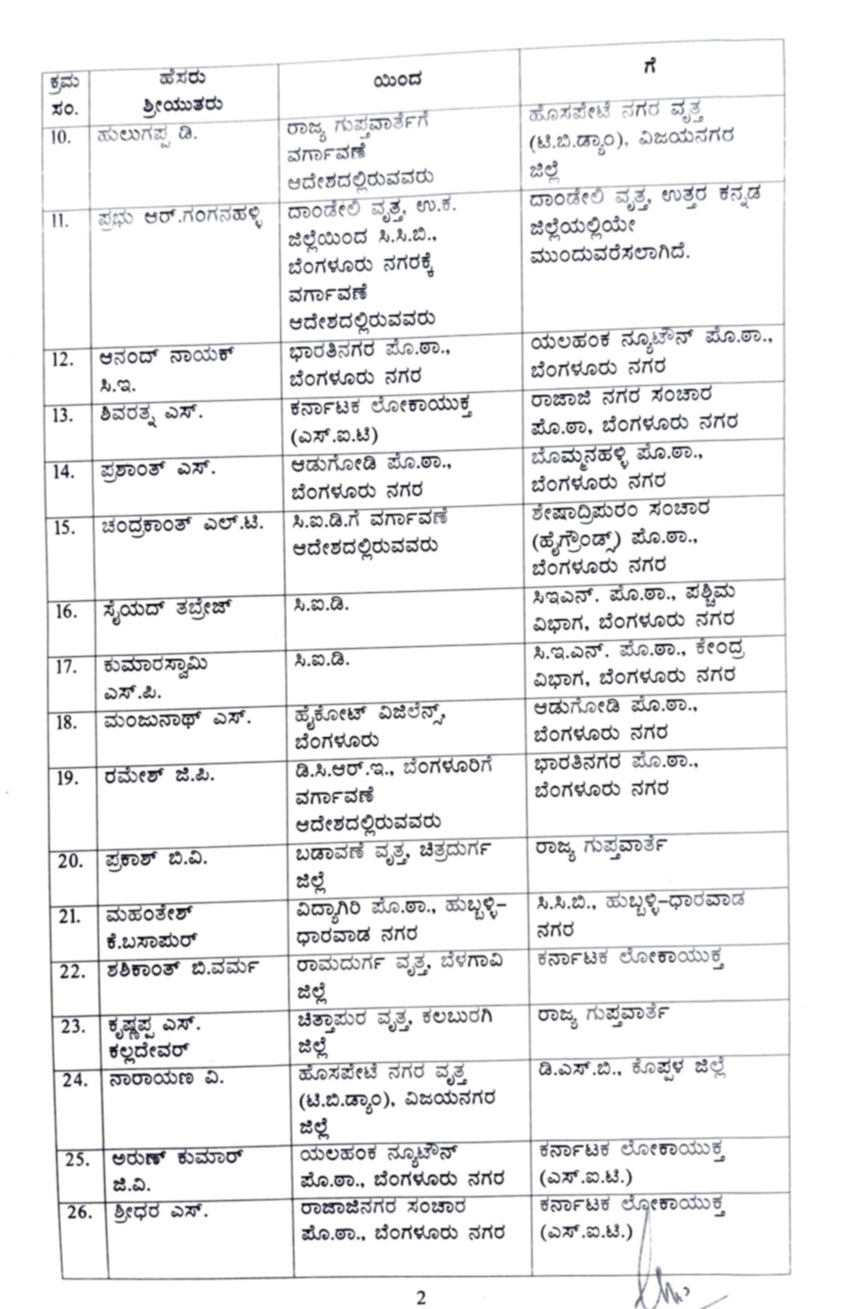 ಕ್ರಮ ಸಂ. | ಹೆಸರು ಶ್ರೀಯುತರು | ಯಿಂದ | ಗೆ
10. | ಹುಲುಗಪ್ಪ ಡಿ. | ರಾಜ್ಯ ಗುಪ್ತವಾರ್ತೆಗೆ ವರ್ಗಾವಣೆ ಆದೇಶದಲ್ಲಿರುವವರು | ಹೊಸಪೇಟೆ ನಗರ ವೃತ್ತ (ಟಿ.ಬಿ.ಡ್ಯಾಂ), ವಿಜಯನಗರ ಜಿಲ್ಲೆ
11. | ಪ್ರಭು ಆರ್.ಗಂಗನಹಳ್ಳಿ | ದಾಂಡೇಲಿ ವೃತ್ತ, ಉ.ಕ. ಜಿಲ್ಲೆಯಿಂದ ಸಿ.ಸಿ.ಬಿ., ಬೆಂಗಳೂರು ನಗರಕ್ಕೆ ವರ್ಗಾವಣೆ ಆದೇಶದಲ್ಲಿರುವವರು | ದಾಂಡೇಲಿ ವೃತ್ತ, ಉತ್ತರ ಕನ್ನಡ ಜಿಲ್ಲೆಯಲ್ಲಿಯೇ ಮುಂದುವರೆಸಲಾಗಿದೆ.
12. | ಆನಂದ್ ನಾಯಕ್ ಸಿ.ಇ. | ಭಾರತಿನಗರ ಪೊ.ಠಾ., ಬೆಂಗಳೂರು ನಗರ | ಯಲಹಂಕ ನ್ಯೂಟೌನ್ ಪೊ.ಠಾ., ಬೆಂಗಳೂರು ನಗರ
13. | ಶಿವರತ್ನ ಎಸ್. | ಕರ್ನಾಟಕ ಲೋಕಾಯುಕ್ತ (ಎಸ್.ಐ.ಟಿ) | ರಾಜಾಜಿ ನಗರ ಸಂಚಾರ ಪೊ.ಠಾ, ಬೆಂಗಳೂರು ನಗರ
14. | ಪ್ರಶಾಂತ್ ಎಸ್. | ಆಡುಗೋಡಿ ಪೊ.ಠಾ., ಬೆಂಗಳೂರು ನಗರ | ಬೊಮ್ಮನಹಳ್ಳಿ ಪೊ.ಠಾ., ಬೆಂಗಳೂರು ನಗರ
15. | ಚಂದ್ರಕಾಂತ್ ಎಲ್.ಟಿ. | ಸಿ.ಐ.ಡಿ.ಗೆ ವರ್ಗಾವಣೆ ಆದೇಶದಲ್ಲಿರುವವರು | ಶೇಷಾದ್ರಿಪುರಂ ಸಂಚಾರ (ಹೈಗ್ರೌಂಡ್ಸ್) ಪೊ.ಠಾ., ಬೆಂಗಳೂರು ನಗರ
16. | ಸೈಯದ್ ತಬ್ರೇಜ್ | ಸಿ.ಐ.ಡಿ. | ಸಿಇಎನ್. ಪೊ.ಠಾ., ಪಶ್ಚಿಮ ವಿಭಾಗ, ಬೆಂಗಳೂರು ನಗರ
17. | ಕುಮಾರಸ್ವಾಮಿ ಎಸ್.ಪಿ. | ಸಿ.ಐ.ಡಿ. | ಸಿ.ಇ.ಎನ್. ಪೊ.ಠಾ., ಕೇಂದ್ರ ವಿಭಾಗ, ಬೆಂಗಳೂರು ನಗರ
18. | ಮಂಜುನಾಥ್ ಎಸ್. | ಹೈಕೋಟ್ ವಿಜಿಲೆನ್ಸ್, ಬೆಂಗಳೂರು | ಆಡುಗೋಡಿ ಪೊ.ಠಾ., ಬೆಂಗಳೂರು ನಗರ
19. | ರಮೇಶ್ ಜಿ.ಪಿ. | ಡಿ.ಸಿ.ಆರ್.ಇ., ಬೆಂಗಳೂರಿಗೆ ವರ್ಗಾವಣೆ ಆದೇಶದಲ್ಲಿರುವವರು | ಭಾರತಿನಗರ ಪೊ.ಠಾ., ಬೆಂಗಳೂರು ನಗರ
20. | ಪ್ರಕಾಶ್ ಬಿ.ವಿ. | ಬಡಾವಣೆ ವೃತ್ತ, ಚಿತ್ರದುರ್ಗ ಜಿಲ್ಲೆ | ರಾಜ್ಯ ಗುಪ್ತವಾರ್ತೆ
21. | ಮಹಂತೇಶ್ ಕೆ.ಬಸಾಪುರ್ | ವಿದ್ಯಾಗಿರಿ ಪೊ.ಠಾ., ಹುಬ್ಬಳ್ಳಿ–ಧಾರವಾಡ ನಗರ | ಸಿ.ಸಿ.ಬಿ., ಹುಬ್ಬಳ್ಳಿ–ಧಾರವಾಡ ನಗರ
22. | ಶಶಿಕಾಂತ್ ಬಿ.ವರ್ಮ | ರಾಮದುರ್ಗ ವೃತ್ತ, ಬೆಳಗಾವಿ ಜಿಲ್ಲೆ | ಕರ್ನಾಟಕ ಲೋಕಾಯುಕ್ತ
23. | ಕೃಷ್ಣಪ್ಪ ಎಸ್. ಕಲ್ಲದೇವರ್ | ಚಿತ್ತಾಪುರ ವೃತ್ತ, ಕಲಬುರಗಿ ಜಿಲ್ಲೆ | ರಾಜ್ಯ ಗುಪ್ತವಾರ್ತೆ
24. | ನಾರಾಯಣ ವಿ. | ಹೊಸಪೇಟೆ ನಗರ ವೃತ್ತ (ಟಿ.ಬಿ.ಡ್ಯಾಂ), ವಿಜಯನಗರ ಜಿಲ್ಲೆ | ಡಿ.ಎಸ್.ಬಿ., ಕೊಪ್ಪಳ ಜಿಲ್ಲೆ
25. | ಅರುಣ್ ಕುಮಾರ್ ಜಿ.ವಿ. | ಯಲಹಂಕ ನ್ಯೂಟೌನ್ ಪೊ.ಠಾ., ಬೆಂಗಳೂರು ನಗರ | ಕರ್ನಾಟಕ ಲೋಕಾಯುಕ್ತ (ಎಸ್.ಐ.ಟಿ.)
26. | ಶ್ರೀಧರ ಎಸ್. | ರಾಜಾಜಿನಗರ ಸಂಚಾರ ಪೊ.ಠಾ., ಬೆಂಗಳೂರು ನಗರ | ಕರ್ನಾಟಕ ಲೋಕಾಯುಕ್ತ (ಎಸ್.ಐ.ಟಿ.)
2